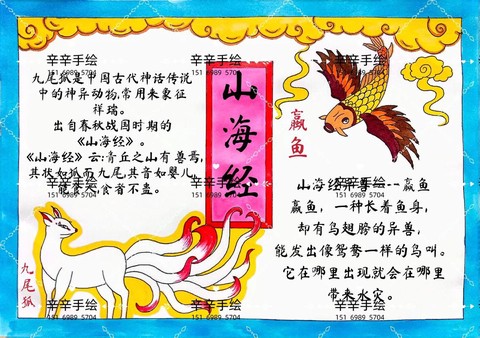 山海经
九尾狐是中国古代神话传说
中的神异动物,常用来象征
祥瑞。
出自春秋战国时期的
《山海经》。
《山海经》云:青丘之山有兽焉,
其状如狐而九尾,其音如婴儿,
能食人,食者不蛊。
九尾狐
嬴鱼
山海经异兽----嬴鱼
嬴鱼,一种长着鱼身,
却有鸟翅膀的异兽,
能发出像鸳鸯一样的鸟叫。
它在哪里出现就会在哪里
带来水灾。
辛辛手绘
151 6989 5704
辛辛手绘
151 6989 5704
辛辛手绘
151 6989 5704
辛辛手绘
151 6989 5704
辛辛手绘
151 6989 5704
辛辛手绘
151 6989 5704
辛辛手绘
151 6989 5704
辛辛手绘
151 6989 5704
辛辛手绘
151 6989 5704